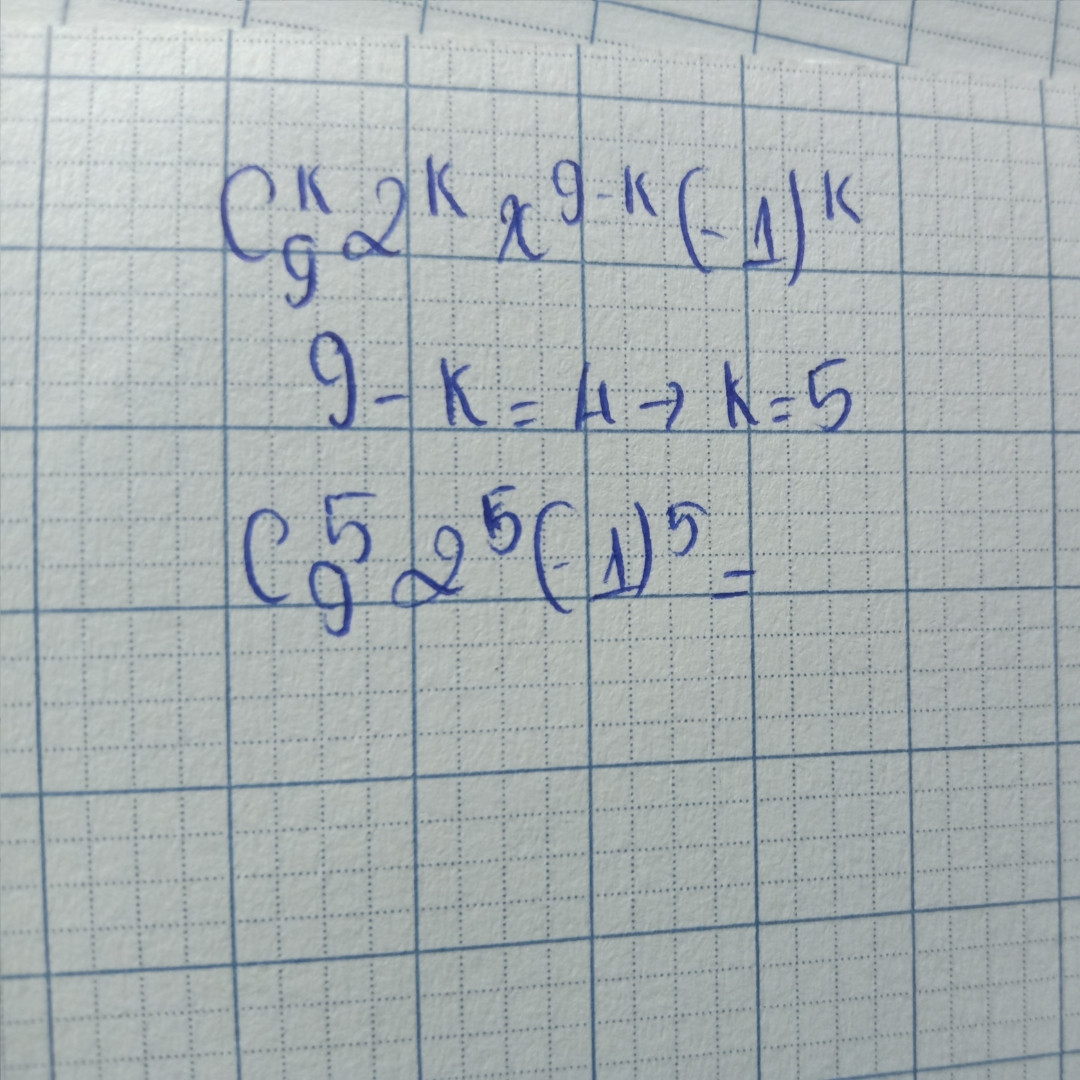 C₉ᴷ 2ᴷ x⁹⁻ᴷ (-1)ᴷ
9 - K = 4 → K = 5
C₉⁵ 2⁵ (-1)⁵ =